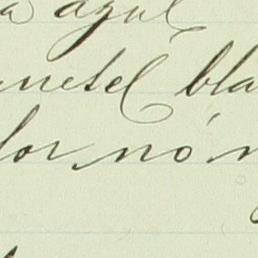 a azul
nesel bla
lor nó n